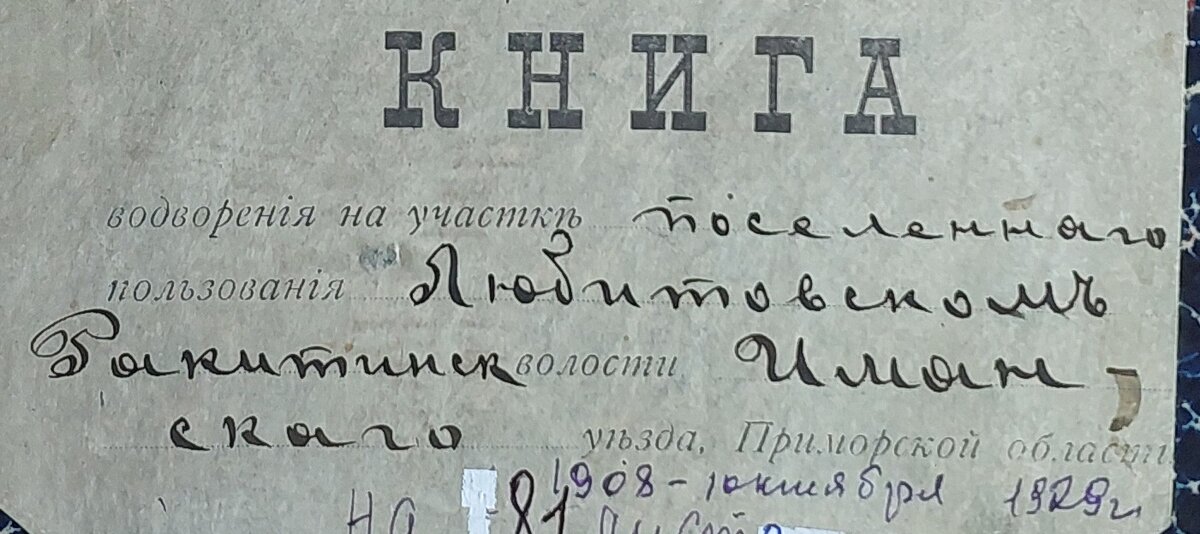 КНИГА
водворенія на участкѣ поселеннаго
пользованія Любитовскомъ
Ракитинск волости Иман-
скаго уѣзда, Приморской области
1908 - октября 1929 г.
на 81